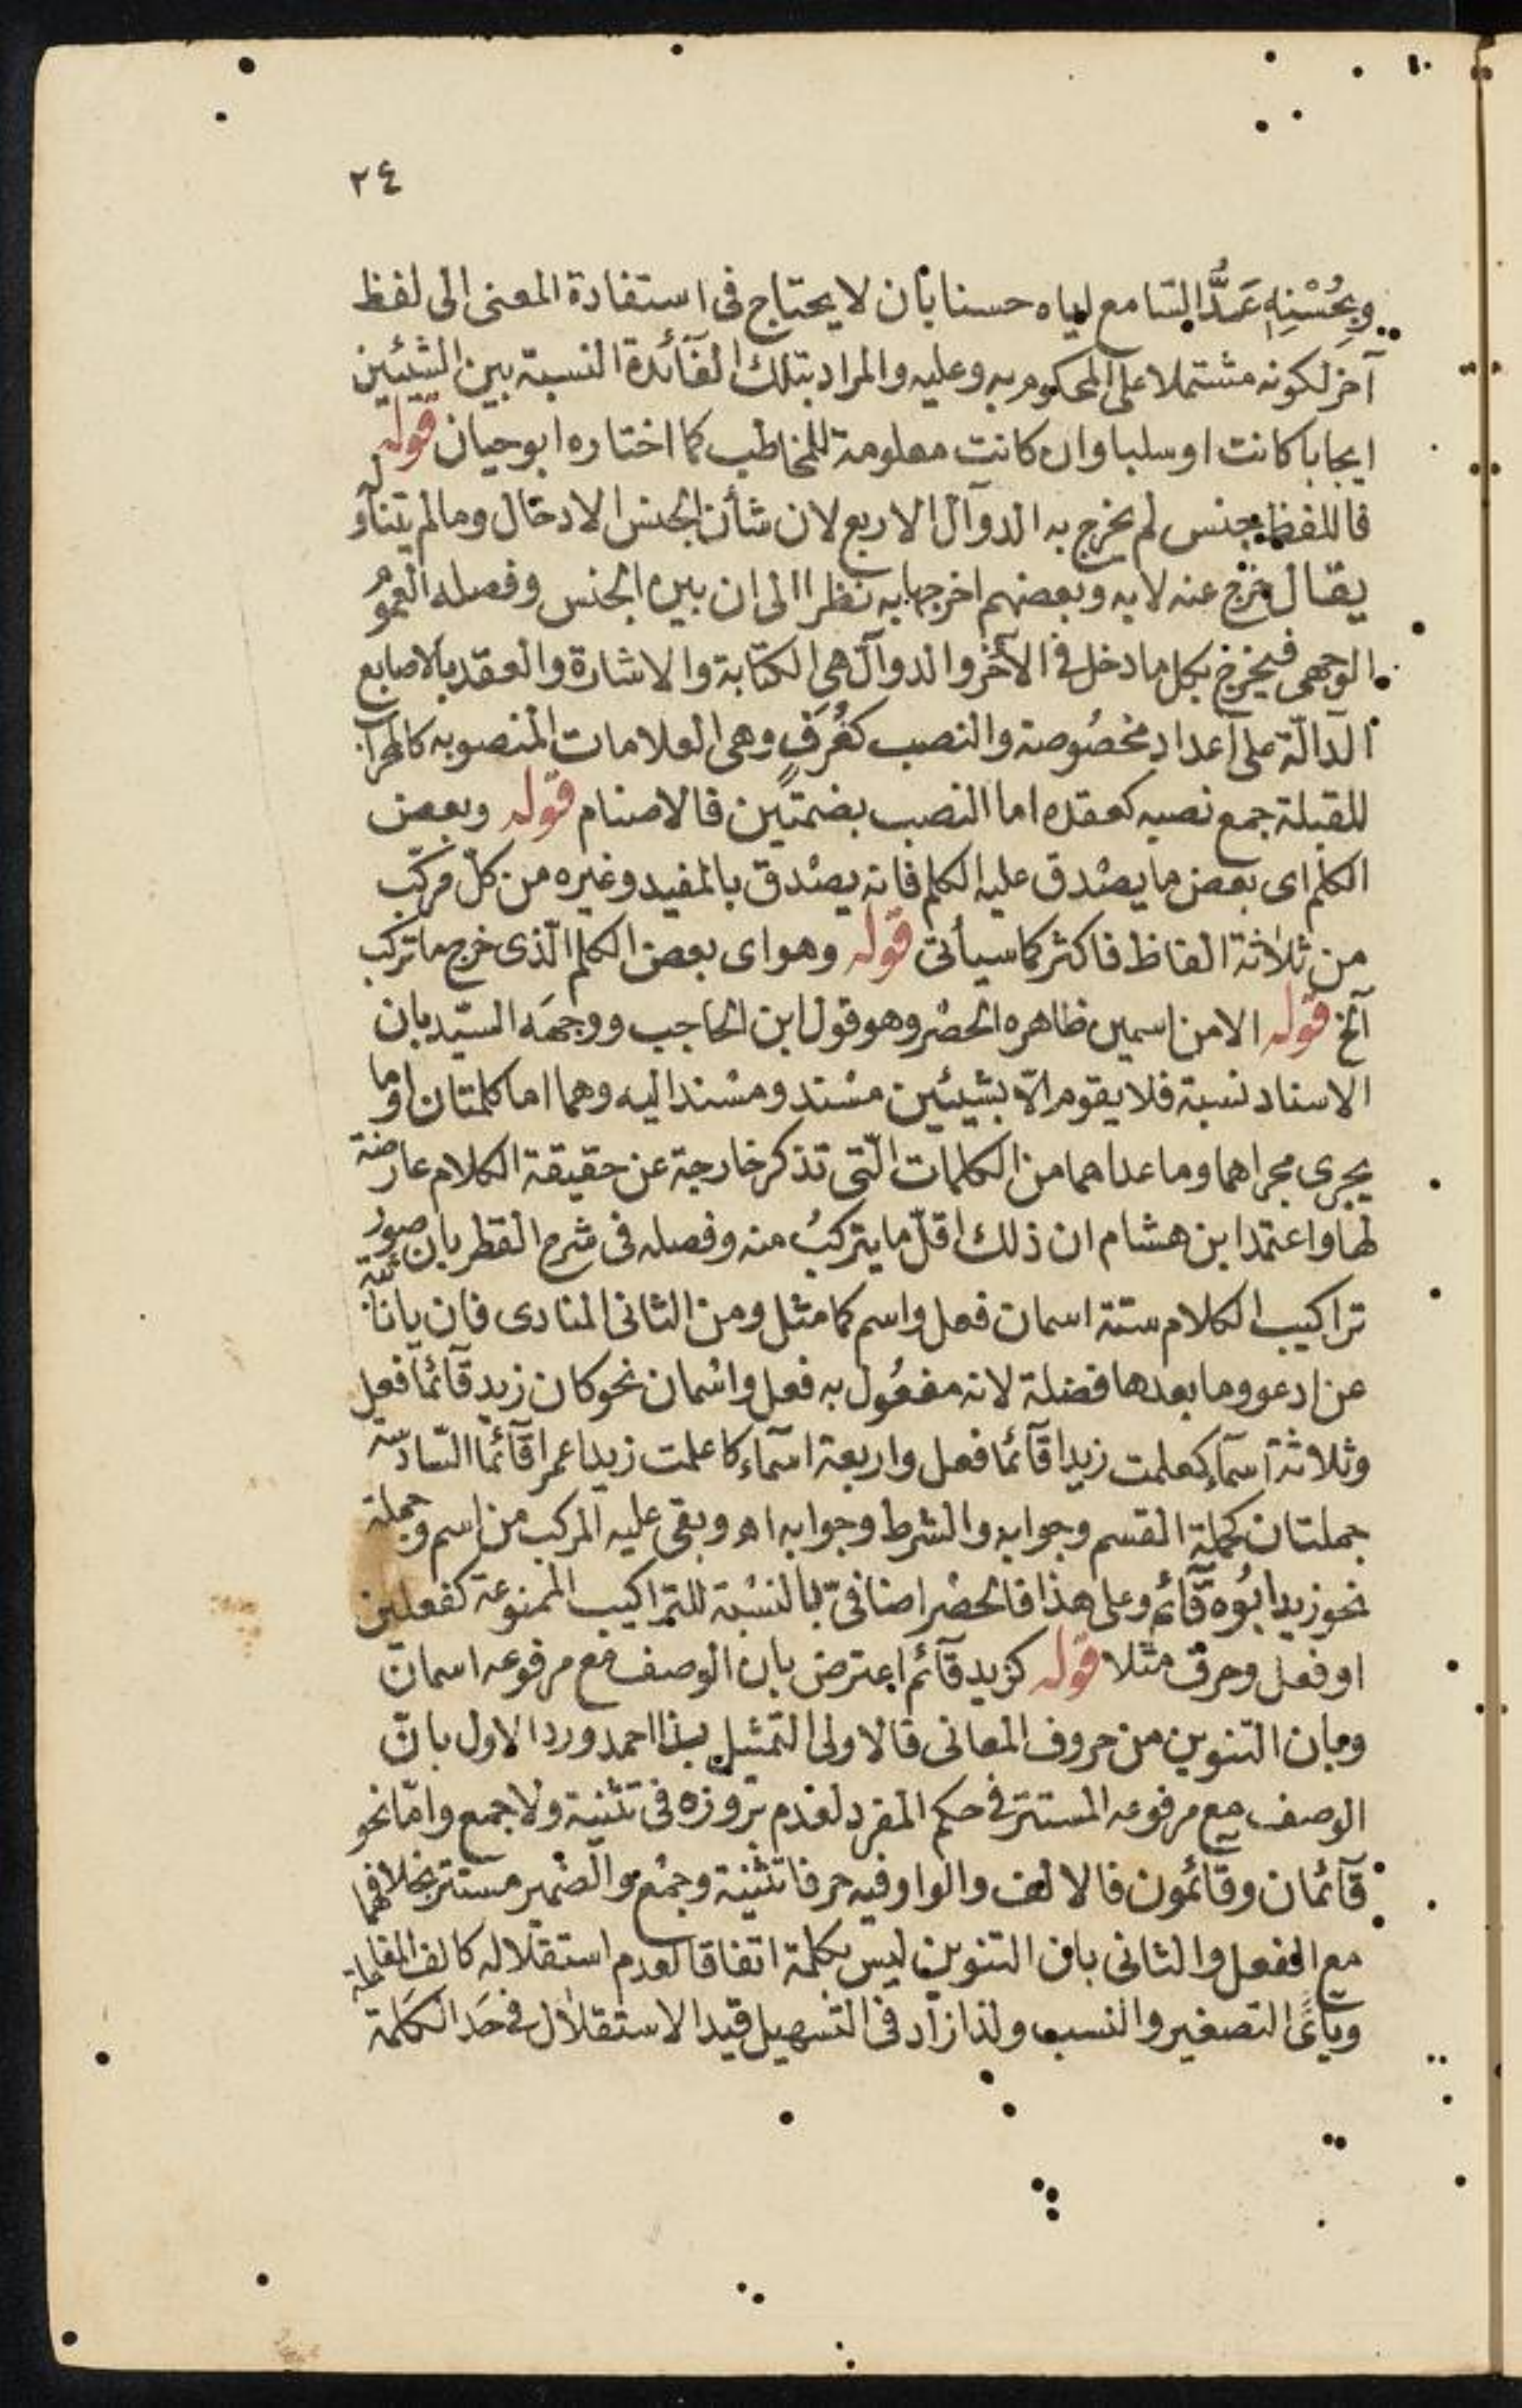 ٢٤
وبِحُسْنِهِ عَدَّ السامع اياه حسنا بأن لا يحتاج فى استفادة المعنى الى لفظ
آخر لكونه مشتملا على المحكوم به وعليه والمراد بتلك الفآئدة النسبة بين الشيئين
ايجابا كانت او سلبا وان كانت معلومة للمخاطب كما اختاره ابوحيان قوله
فاللفظ جنس لم يخرج به الدوآل الاربع لان شأن الجنس الادخال وما لم يتناوله
يقال خرج عنه لا به وبعضهم اخرجها به نظرا الى ان بين الجنس وفصله العموم
الوجهى فيخرج بكل ما دخل فى الآخر والدوآل هى الكتابة والاشارة والعقد بالاصابع
الدآلّة على أعداد مخصُوصة والنصب كغُرَفٍ وهى العلامات المنصوبه كالمحراب
للقبلة جمع نصبه كعقده اما النصب بضمتين فالاصنام قوله وبعض
الكلم اى بعض ما يصْدق عليه الكلم فانه يصْدق بالمفيد وغيره من كلّ مركّب
من ثلاثة الفاظ فاكثر كما سيأتى قوله وهو اى بعض الكلم الّذى خرج ما تركب
آلخ قوله الا من اسمين ظاهره الحصْر وهو قول ابن الحاجب ووجهَه السيّد بان
الاسناد نسبة فلا يقوم الّا بشيئين مسْند ومسْند اليه وهما اما كلمتان او ما
يجرى مجراهما وما عداهما من الكلمات الّتى تذكر خارجة عن حقيقة الكلام عارضة
لها واعتمد ابن هشام ان ذلك اقلّ ما يتركبُ منه وفصله فى شرح القطر بان صورُ
تراكيب الكلام ستة اسمان فعل واسم كما مثل ومن الثانى المنادى فان يا نائبة
عن ادعو وما بعدها فضلة لانه مفعُول به فعل واسْمان نحو كان زيد قآئما فعل
وثلاثة أسمآء كعلمت زيدا قآئما فعل واربعة اسمآء كاعلمت زيدا عمرا قآئما السّادسة
جملتان كجملة القسم وجوابه والشرط وجوابه اه وبقى عليه المركب من اسم وجملة
نحو زيد ابُوه قآئم وعلى هذا فالحصْر اضافىّ بالنسْبة للتراكيب الممنوعة كفعلين
او فعل وحرف مثلا قوله كزيد قآئم اعترض بان الوصف مع مرفوعه اسمان
وبان التنوين من حروف المعانى فالاولى التمثيل بذا احمد ورد الاول بانّ
الوصف مع مرفوعه المستتر فى حكم المفرد لعدم بروزه فى تثنية ولا جمع وامّا نحو
قآئمان وقآئمون فالالف والواو فيه حرفا تثنية وجمْع والضمير مستتر بخلافهما
مع الفعل والثانى بان التنوين ليس بكلمة اتفاقا لعدم استقلاله كالف المفاعلة
ويآئى التصغير والنسب ولذا زاد فى التسهيل قيد الاستقلال فى حَد الكلمة